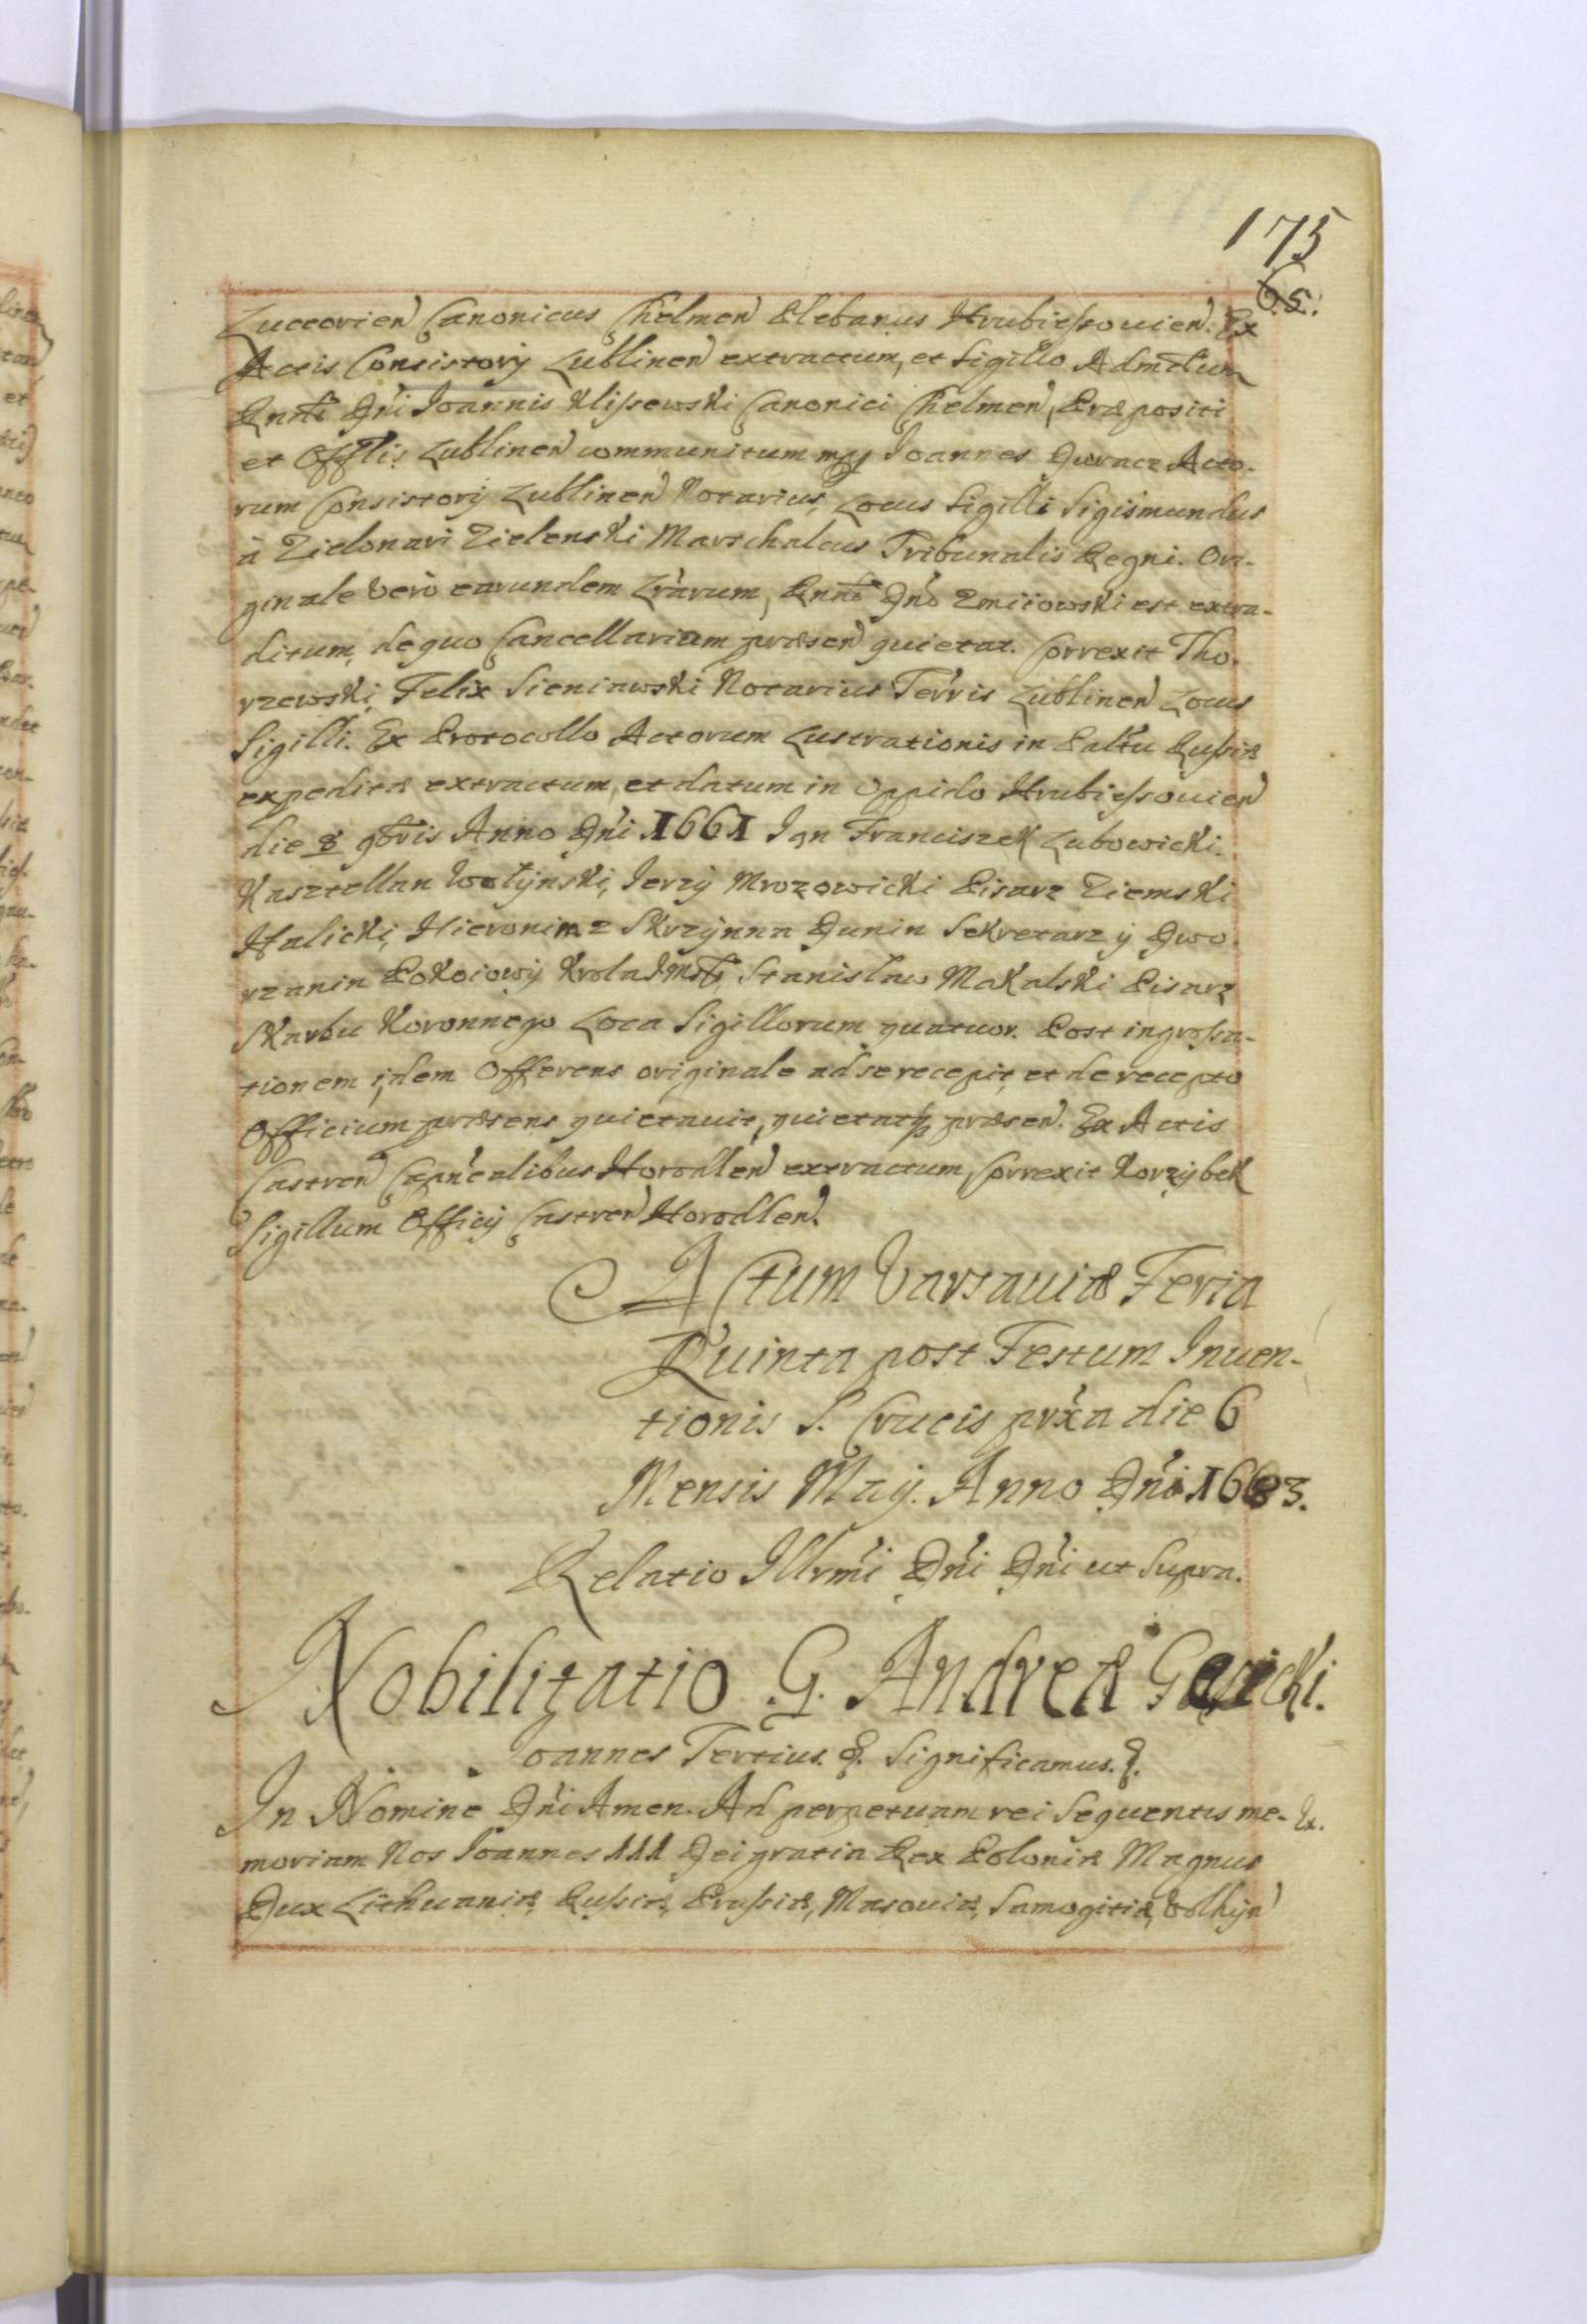 175
65.
Luceorien Canonicus Chelmen Plebanus Hrubieszouien. Ex
Actis Consistorij Lublinen extractum, et Sigillo Admdum
Rndi Dni Joannis Kliszewski Canonici Chelmen, Præpositi
et Offlis Lublinen communitum mpp Joannes Acto-
rum Consistorij Lublinen Notarius, Locus Sigilli Sigismundus
à Zielenski Marschalcus Tribunalis Regni. Ori-
ginale verò earundem Lrarum, Rndo Dno Zmiiowski est extra-
ditum, de quo Cancellariam præsen quietat. Correxit Tho-
rzewski, Felix Sieniawski Notarius Terris Lublinen Locus
Sigilli. Ex Protocollo Actorum Lustrationis in Paltu Russiæ
expeditæ extractum, et datum in Oppido Hrubieszouien
die 8 9bris Anno Dni 1661 Jan Franciszek Lubowicki
Kasztellan Wołynski, Jerzy Mrozowicki Pisarz Ziemski
Halicki, Hieronim z Skrzynna Dunin Sekretarz y Dwo-
rzanin Pokoiowy Krola JMsti, Stanisław Makalski Pisarz
Skarbu Koronnego Loca Sigillorum quatuor. Post ingrossa-
tionem idem Offerens originale ad se recepit, et de recepto
Officium præsens quietauit, quietatq præsen. Ex Actis
Castren Capnealibus Horodlen extractum, Correxit Korzybek
Sigillum Officij Castren Horodlen.
Actum Varsauiæ Feria
Quinta post Festum Inuen-
tionis S. Crucis prxa die 6
Mensis Maij. Anno Dni 1683.
Relatio Illrmi Dni Dni ut Supra.
Nobilitatio G. Andreæ
Joannes Tertius. &. Significamus. &.
In Nomine Dni Amen. Ad perpetuam rei Sequentis me- Ex.
moriam Nos Joannes III Dei gratia Rex Poloniæ Magnus
Dux Lithuaniæ, Russiæ, Prussiæ, Masouiæ, Samogitiæ, Volhyn